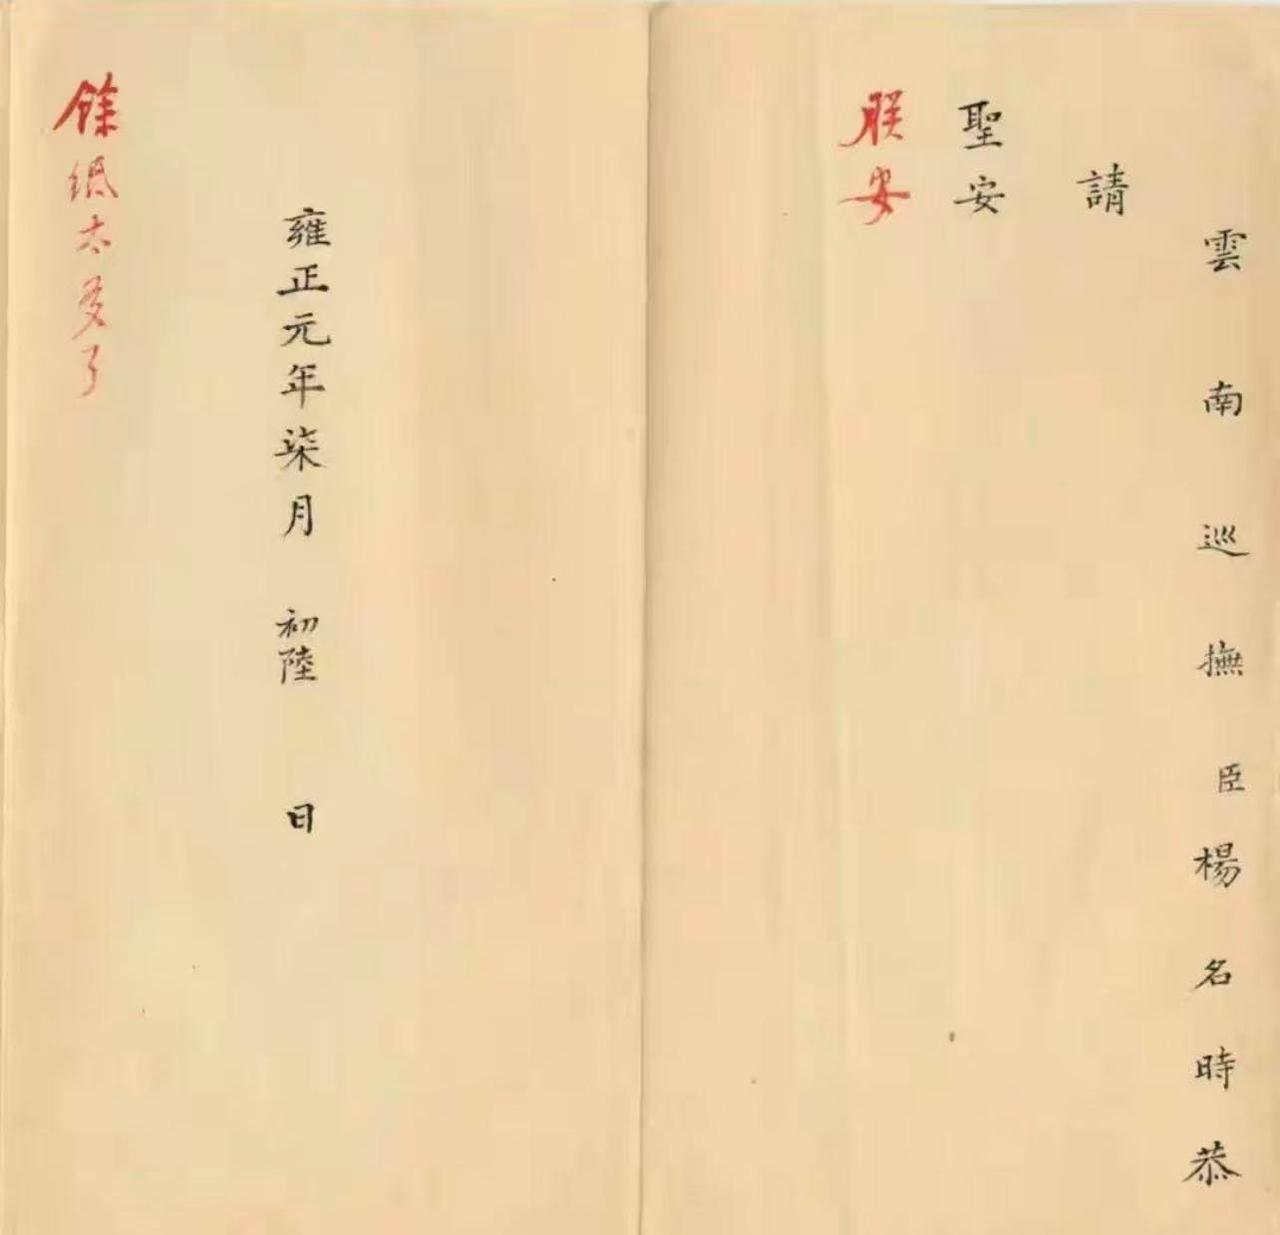 雲南巡撫臣楊名時恭
請
聖安
朕安
雍正元年柒月初陸日
餘紙太多了